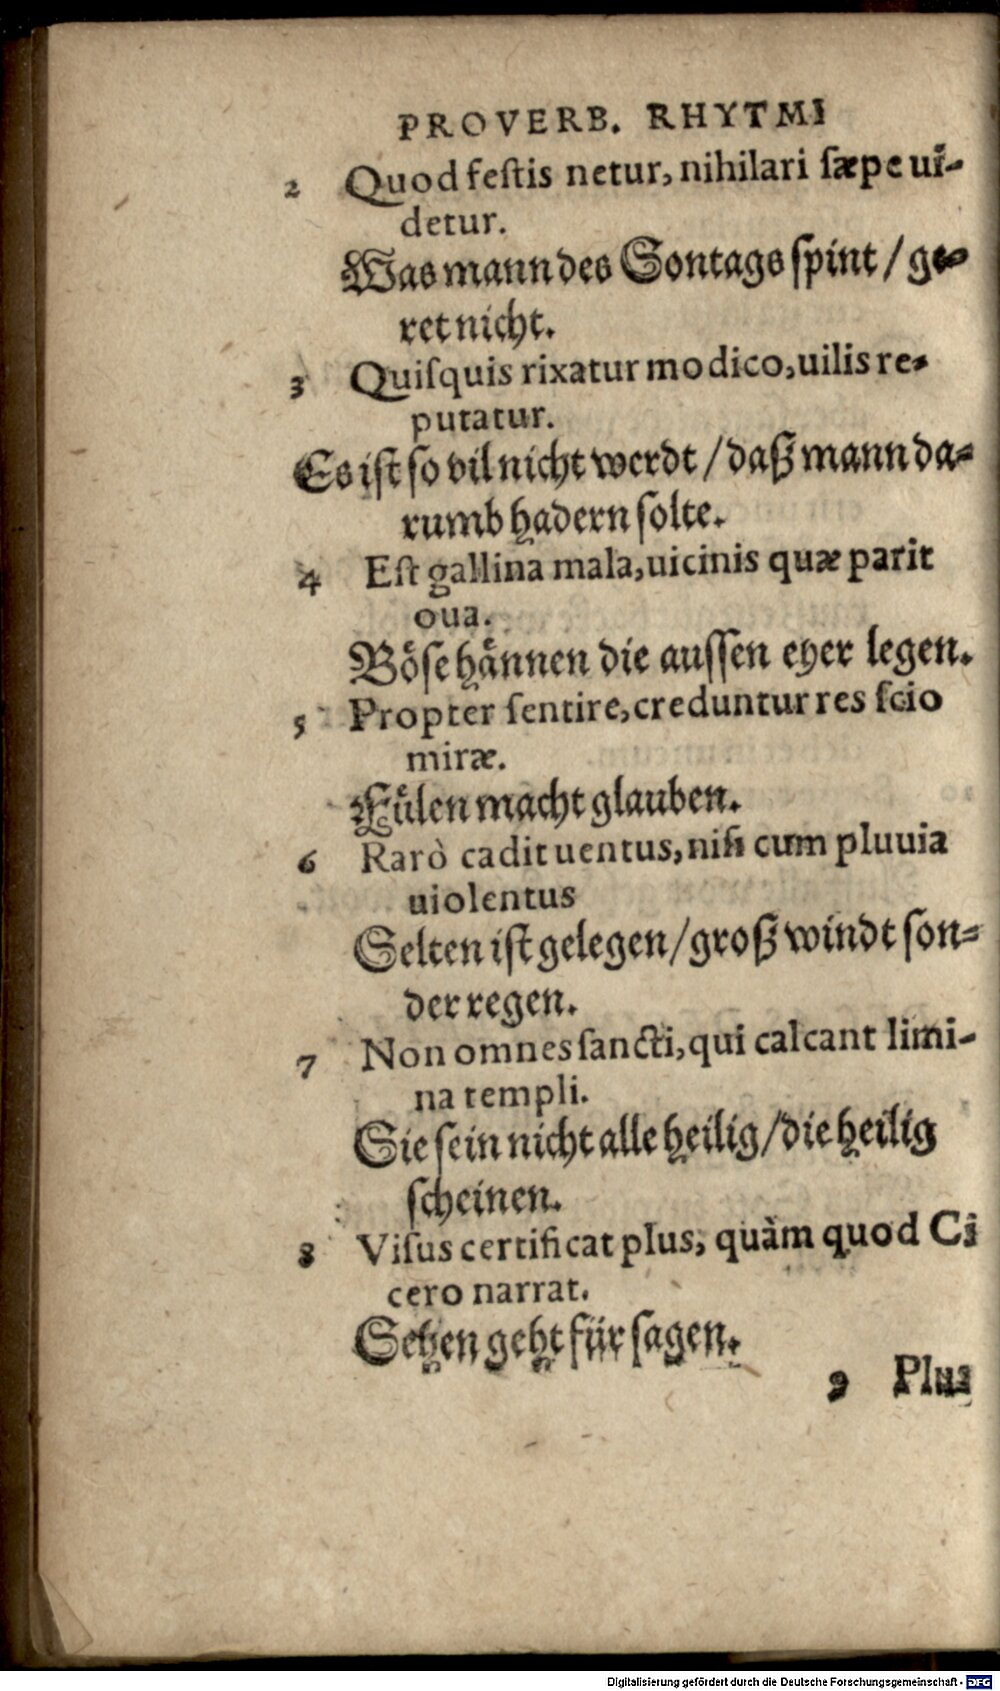 PROVERB. RHYTMI
2 Quod festis netur, nihilari sæpe ui-
detur.
Was mann des Sontags spint / ge-
ret nicht.
3 Quisquis rixatur modico, uilis re-
putatur.
Es ist so vil nicht werdt / daß mann da-
rumb hadern solte.
4 Est gallina mala, uicinis quæ parit
oua.
Böse hännen die aussen eyer legen.
5 Propter sentire, creduntur res scio
miræ.
Fülen macht glauben.
6 Rarò cadit uentus, nisi cum pluuia
uiolentus
Selten ist gelegen / groß windt son-
der regen.
7 Non omnes sancti, qui calcant limi-
na templi.
Sie sein nicht alle heilig / die heilig
scheinen.
8 Visus certificat plus, quàm quod Ci
cero narrat.
Sehen geht für sagen.
9 Plus
Digitalisierung gefördert durch die Deutsche Forschungsgemeinschaft - DFG